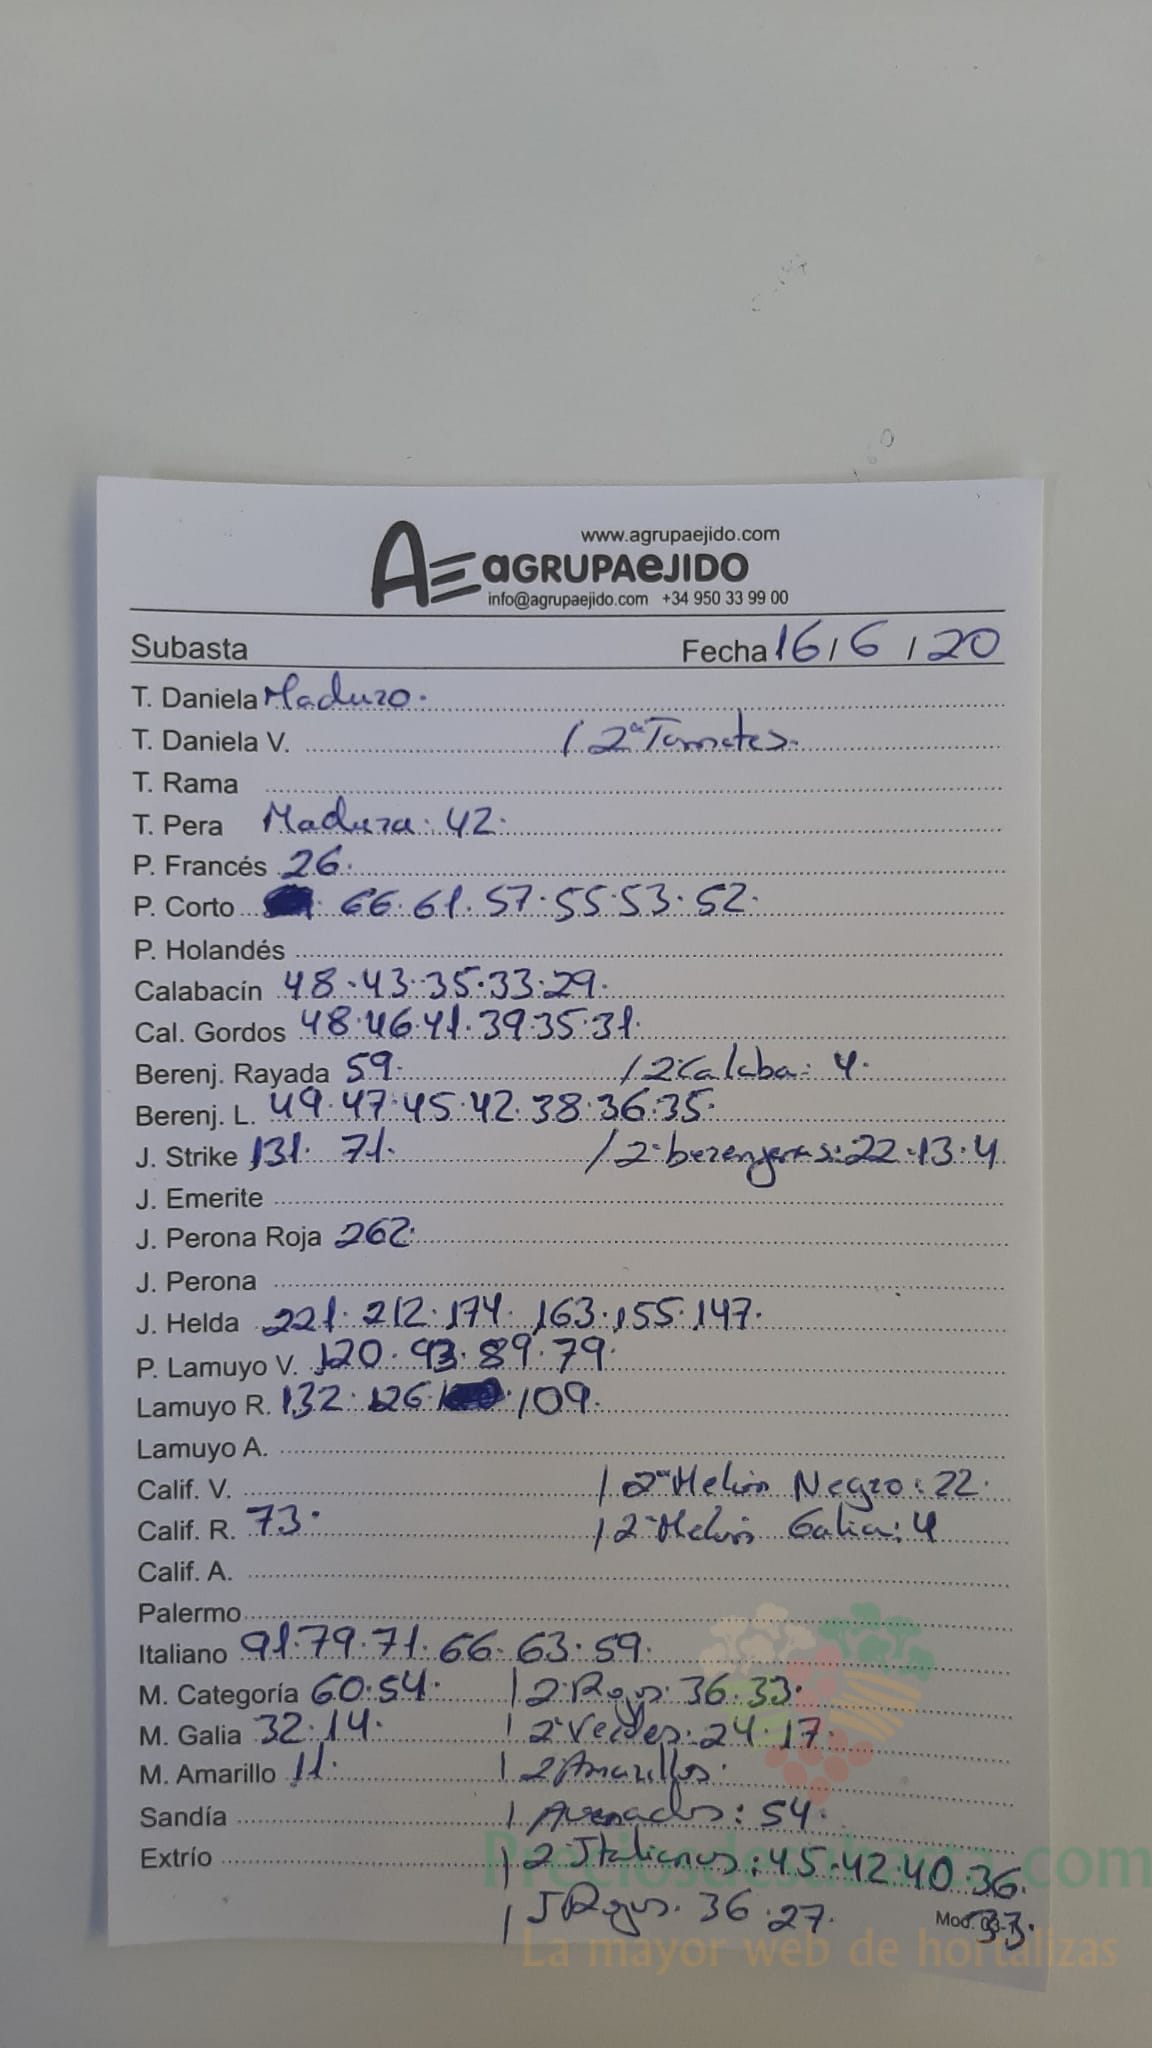 www.agrupaejido.com
AE aGRUPAeJIDO
info@agrupaejido.com +34 950 33 99 00
Subasta Fecha 16/6/20
T. Daniela Maduro.
T. Daniela V. / 2ª Tomates.
T. Rama
T. Pera Madura. 42.
P. Francés 26.
P. Corto 66.61.57.55.53.52.
P. Holandés
Calabacín 48.43.35.33.29.
Cal. Gordos 48.46.41.39.35.31.
Berenj. Rayada 59. / 2ª Calaba: 4.
Berenj. L. 49.47.45.42.38.36.35.
J. Strike 131. 71. / 2ª berenjenas: 22.13.4
J. Emerite
J. Perona Roja 262.
J. Perona
J. Helda 221.212.174.163.155.147.
P. Lamuyo V. 120.93.89.79.
Lamuyo R. 132.126. 109.
Lamuyo A.
Calif. V. / 2ª Melón Negro: 22.
Calif. R. 73. / 2ª Melón Galia: 4
Calif. A.
Palermo
Italiano 91.79.71.66.63.59.
M. Categoría 60.54. / 2ª Rojos. 36.33.
M. Galia 32.14. / 2ª Verdes. 24.17.
M. Amarillo 11. / 2 Amarillos.
Sandía / : 54.
Extrío / 2ª Italianos: 45.42.40.36.
33.
/ J Rojos. 36.27.
Preciosdesubasta.com
La mayor web de hortalizas